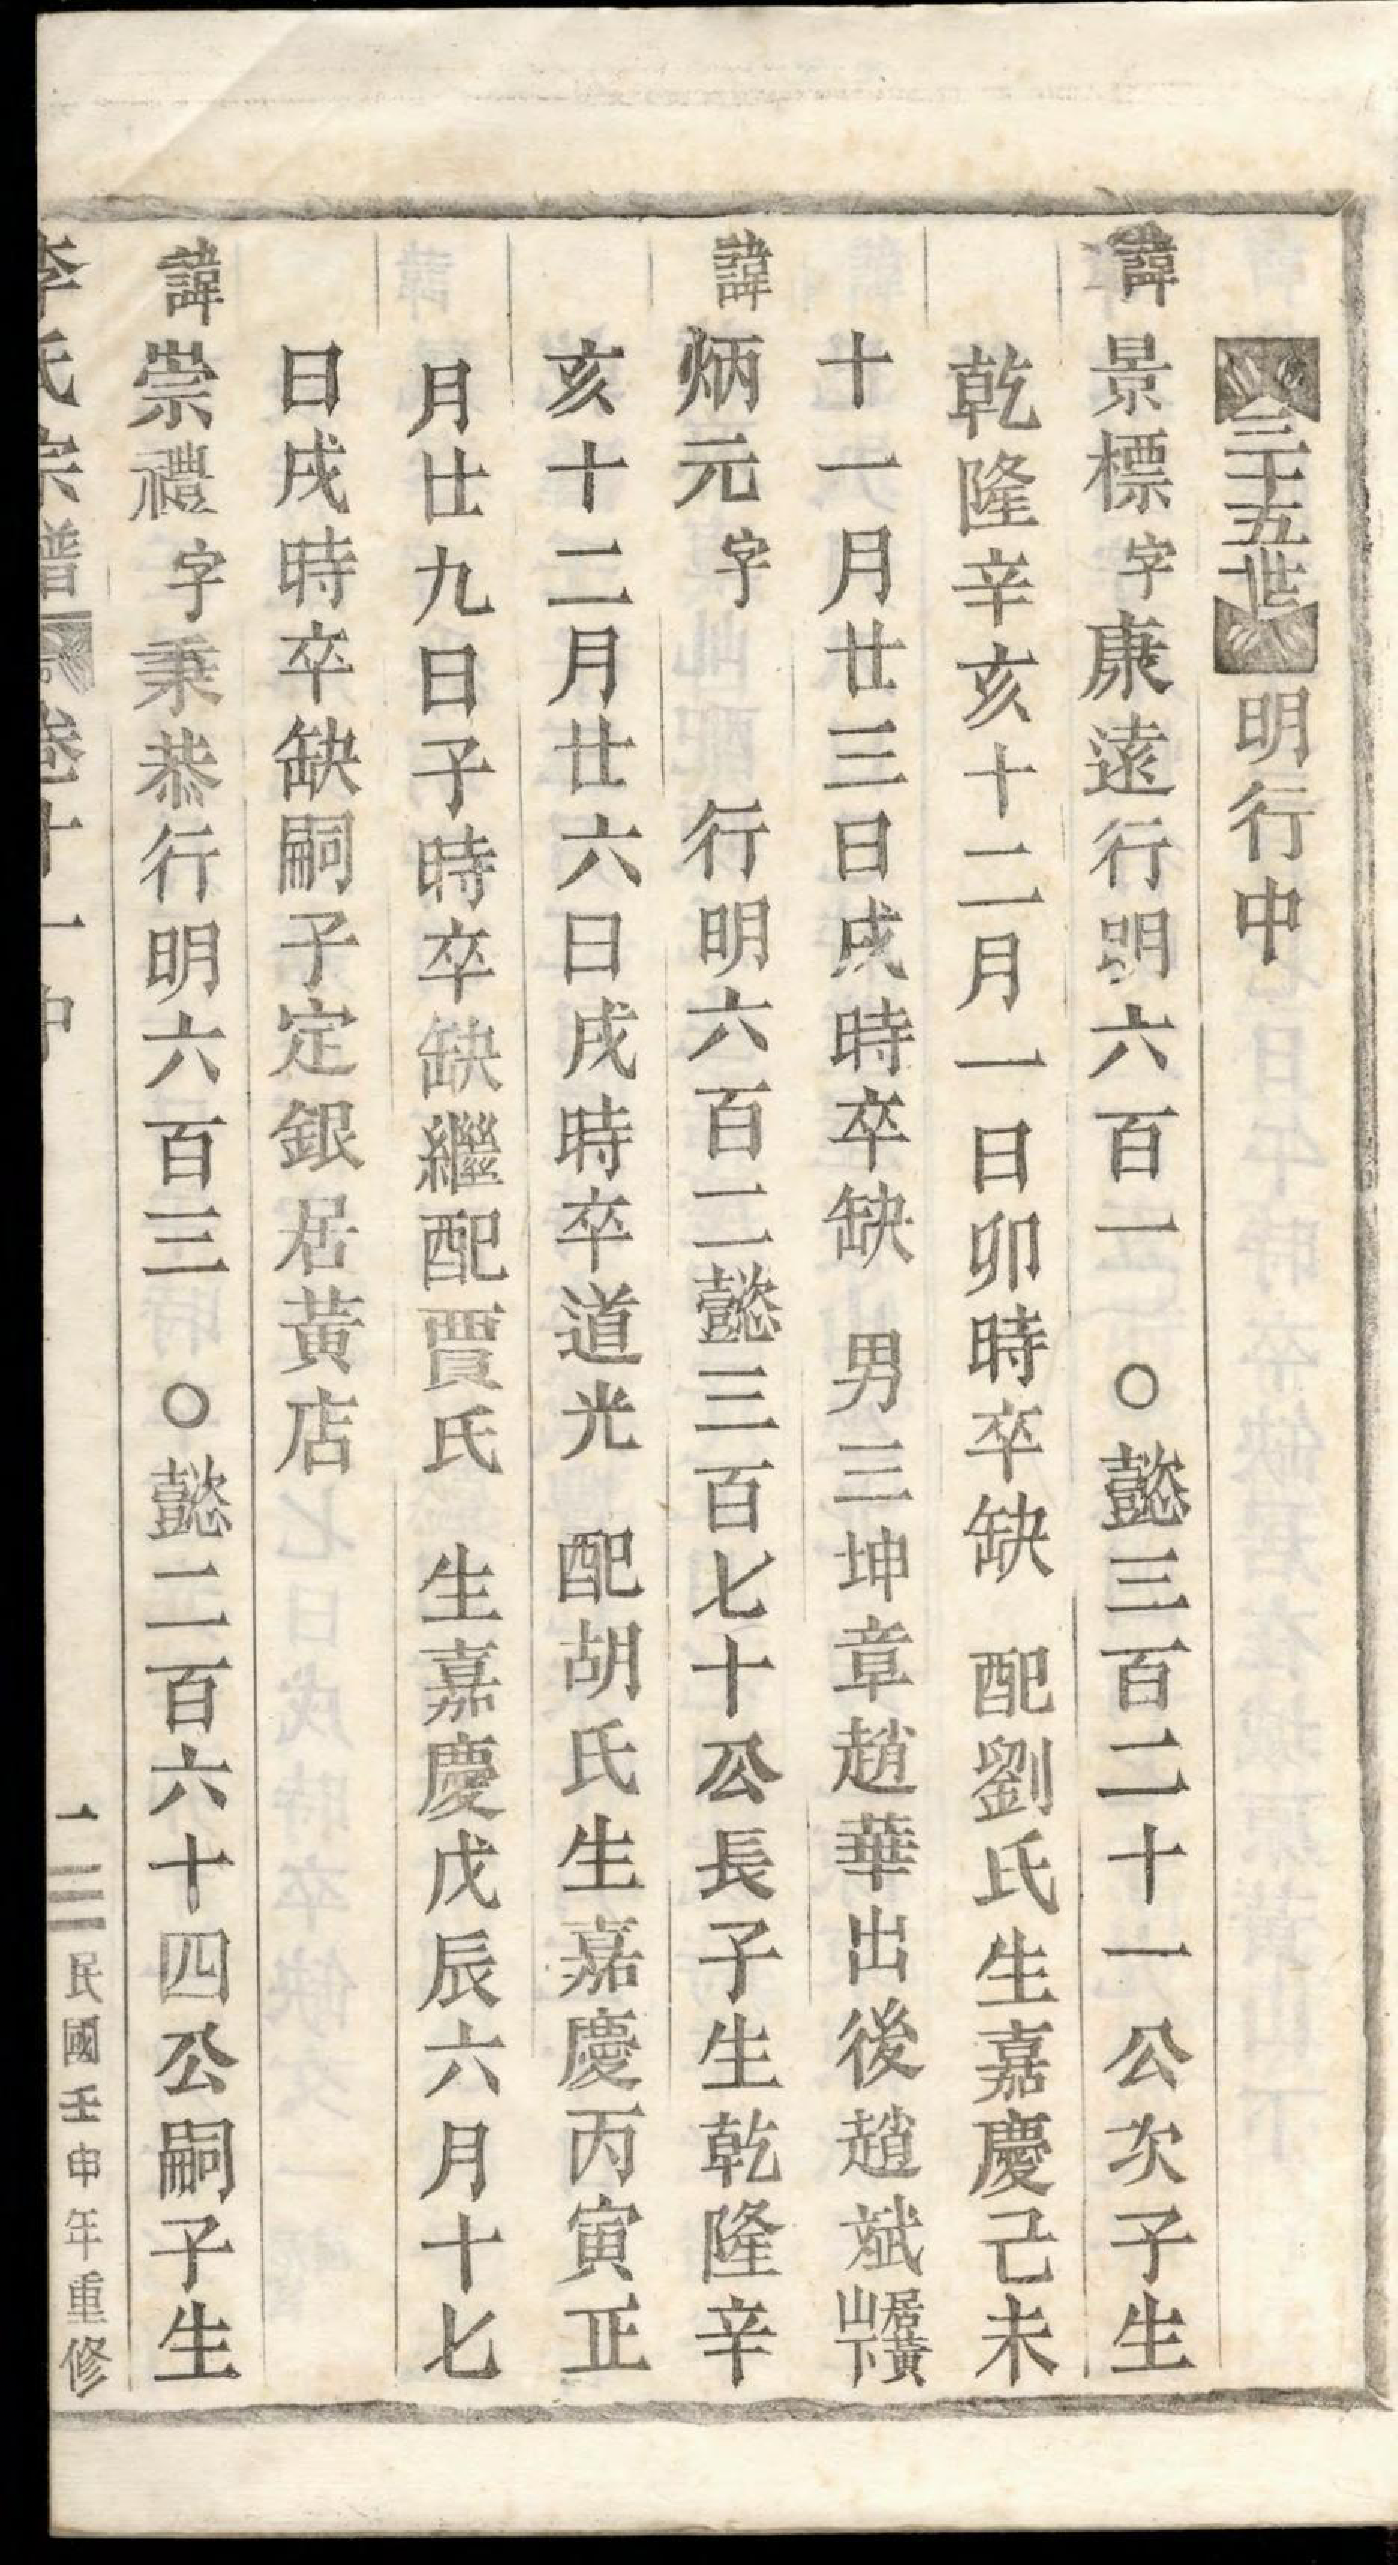 三十五世 明行中
諱景標字康遠行明六百一 ○懿三百二十一公次子生
乾隆辛亥十二月一日卯時卒缺 配劉氏生嘉慶己未
十一月廿三日戌時卒缺 男三坤章趙華出後趙斌居黃山下
諱炳元字 行明六百二懿三百七十公長子生乾隆辛
亥十二月廿六日戌時卒道光 配胡氏生嘉慶丙寅正
月廿九日子時卒缺繼配賈氏 生嘉慶戊辰六月十七
日戌時卒缺嗣子定銀居黃店
諱崇禮字秉恭行明六百三 ○懿二百六十四公嗣子生
李氏宗譜 卷十一中 一 三 民國壬申年重修